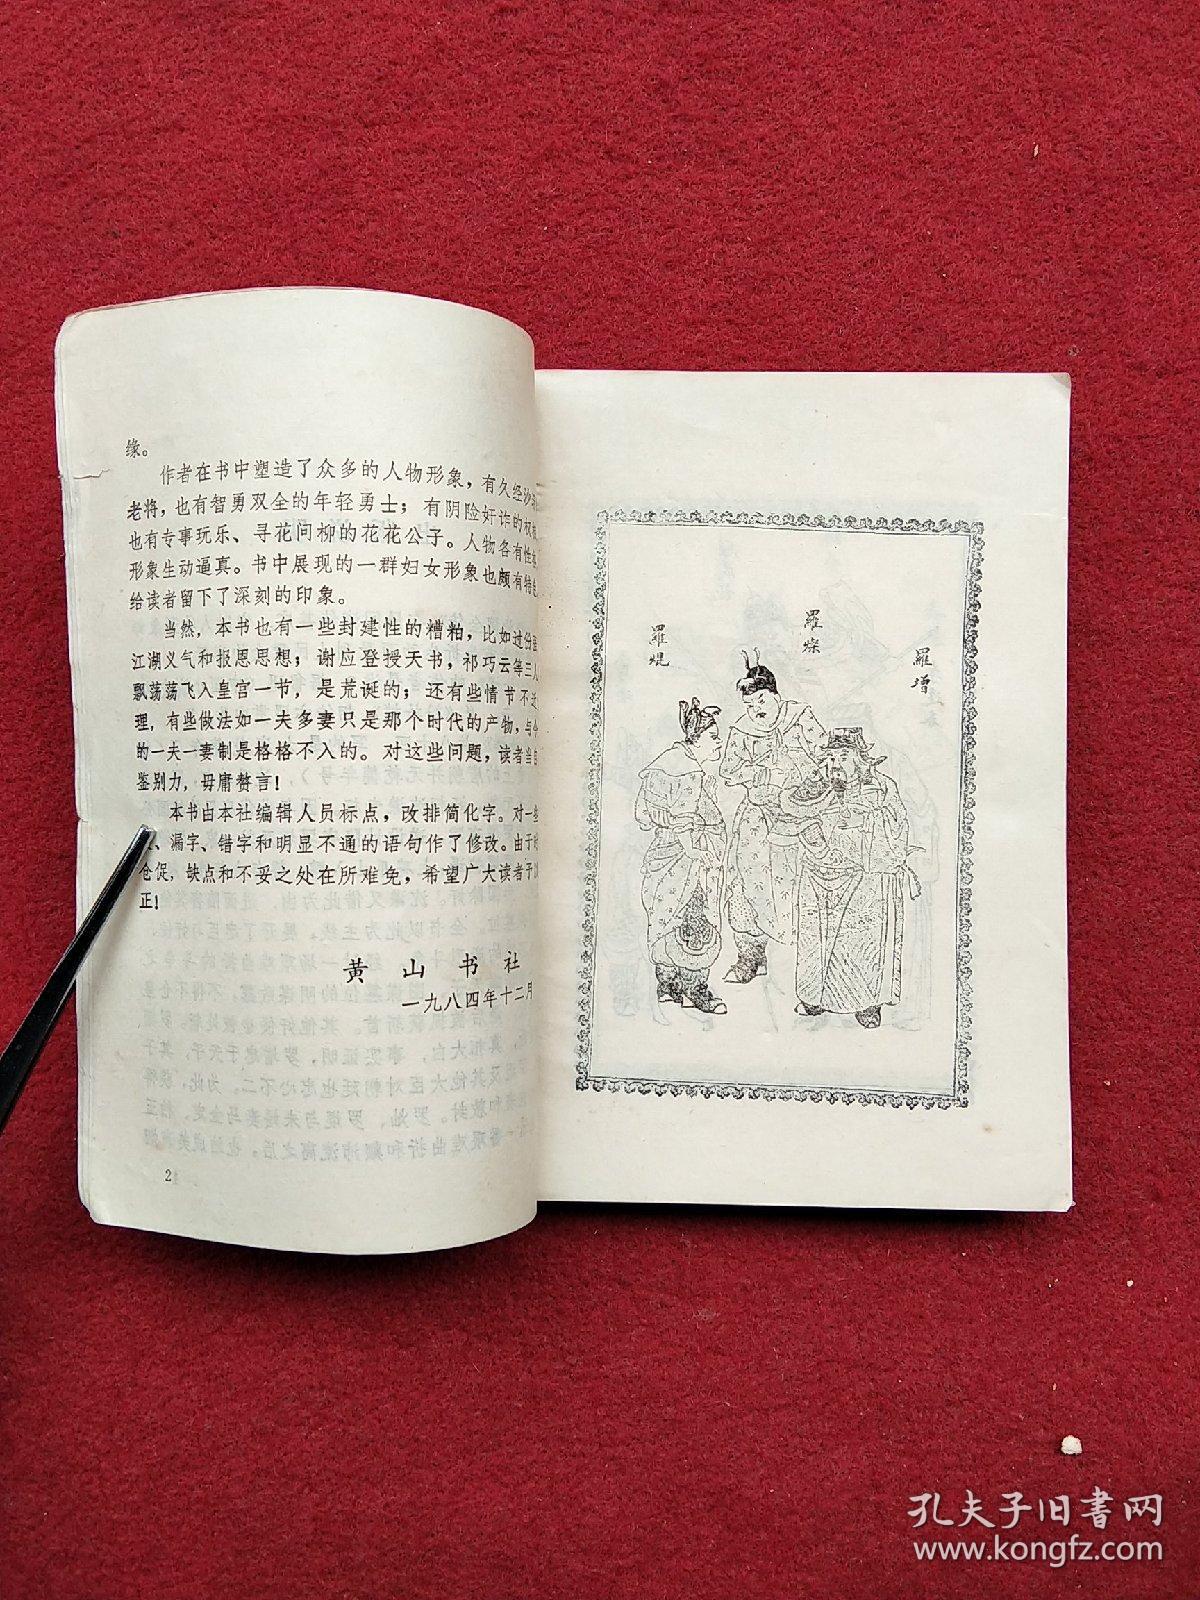 缘。
作者在书中塑造了众多的人物形象，有久经沙
老将，也有智勇双全的年轻勇士；有阴险奸诈的权
也有专事玩乐、寻花问柳的花花公子。人物各有性
形象生动逼真。书中展现的一群妇女形象也颇有特
给读者留下了深刻的印象。
当然，本书也有一些封建性的糟粕，比如过份
江湖义气和报恩思想；谢应登授天书，祁巧云等三人
飘荡荡飞入皇宫一节，是荒诞的；还有些情节不
理，有些做法如一夫多妻只是那个时代的产物，与今
的一夫一妻制是格格不入的。对这些问题，读者当
鉴别力，毋庸赘言！
本书由本社编辑人员标点，改排简化字。对一些
、漏字、错字和明显不通的语句作了修改。由于
仓促，缺点和不妥之处在所难免，希望广大读者予
正！
黄山书社
一九八四年十二月
2
羅焜
羅燦
羅增
孔夫子旧书网
www.kongfz.com